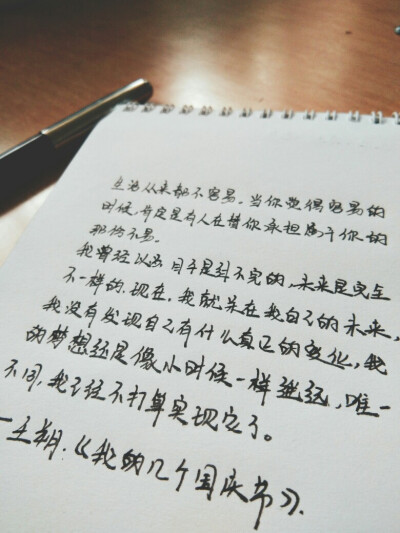 生活从来都不容易。当你觉得容易的
时候，肯定是有人在替你承担属于你的
那份不易。
我曾经以为日子是过不完的，未来是完全
不一样的。现在，我就呆在我自己的未来，
我没有发现自己有什么真正的变化，我
的梦想还是像小时候一样遥远，唯一
不同，我已经不打算实现它了。
—王朔.《我的几个国庆节》.